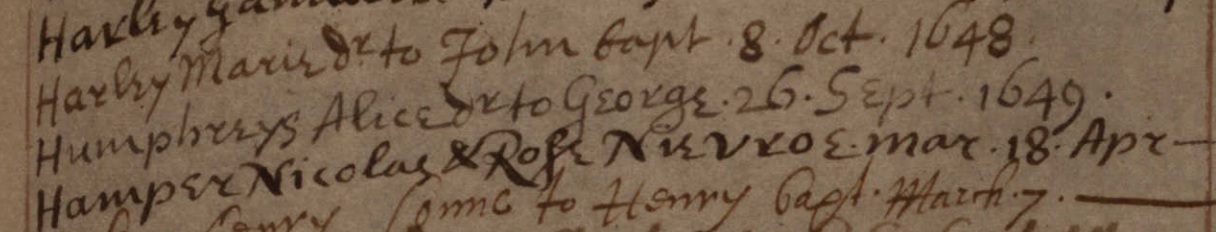 Harley
Harley Marie dr to John bapt . 8 . Oct . 1648 .
Humphreys Alice dr to George . 26 . Sept . 1649 .
Hamper Nicolas & Rose Nievroe . mar . 18 . Apr —
Henry sonne to Henry bapt . March . 7 . —